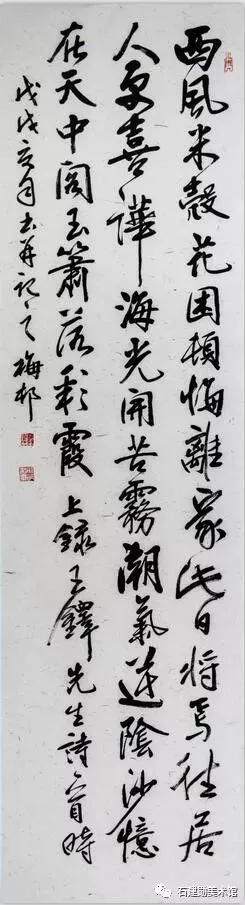 西風米殼花困頓悔離家此日將焉往居
人更喜譁海光開苦霧潮氣逆陰沙憶
在天中閣玉簫落彩霞上錄王鐸先生詩一首時
戊戌亥月書并記之梅邨
石建勤美术馆